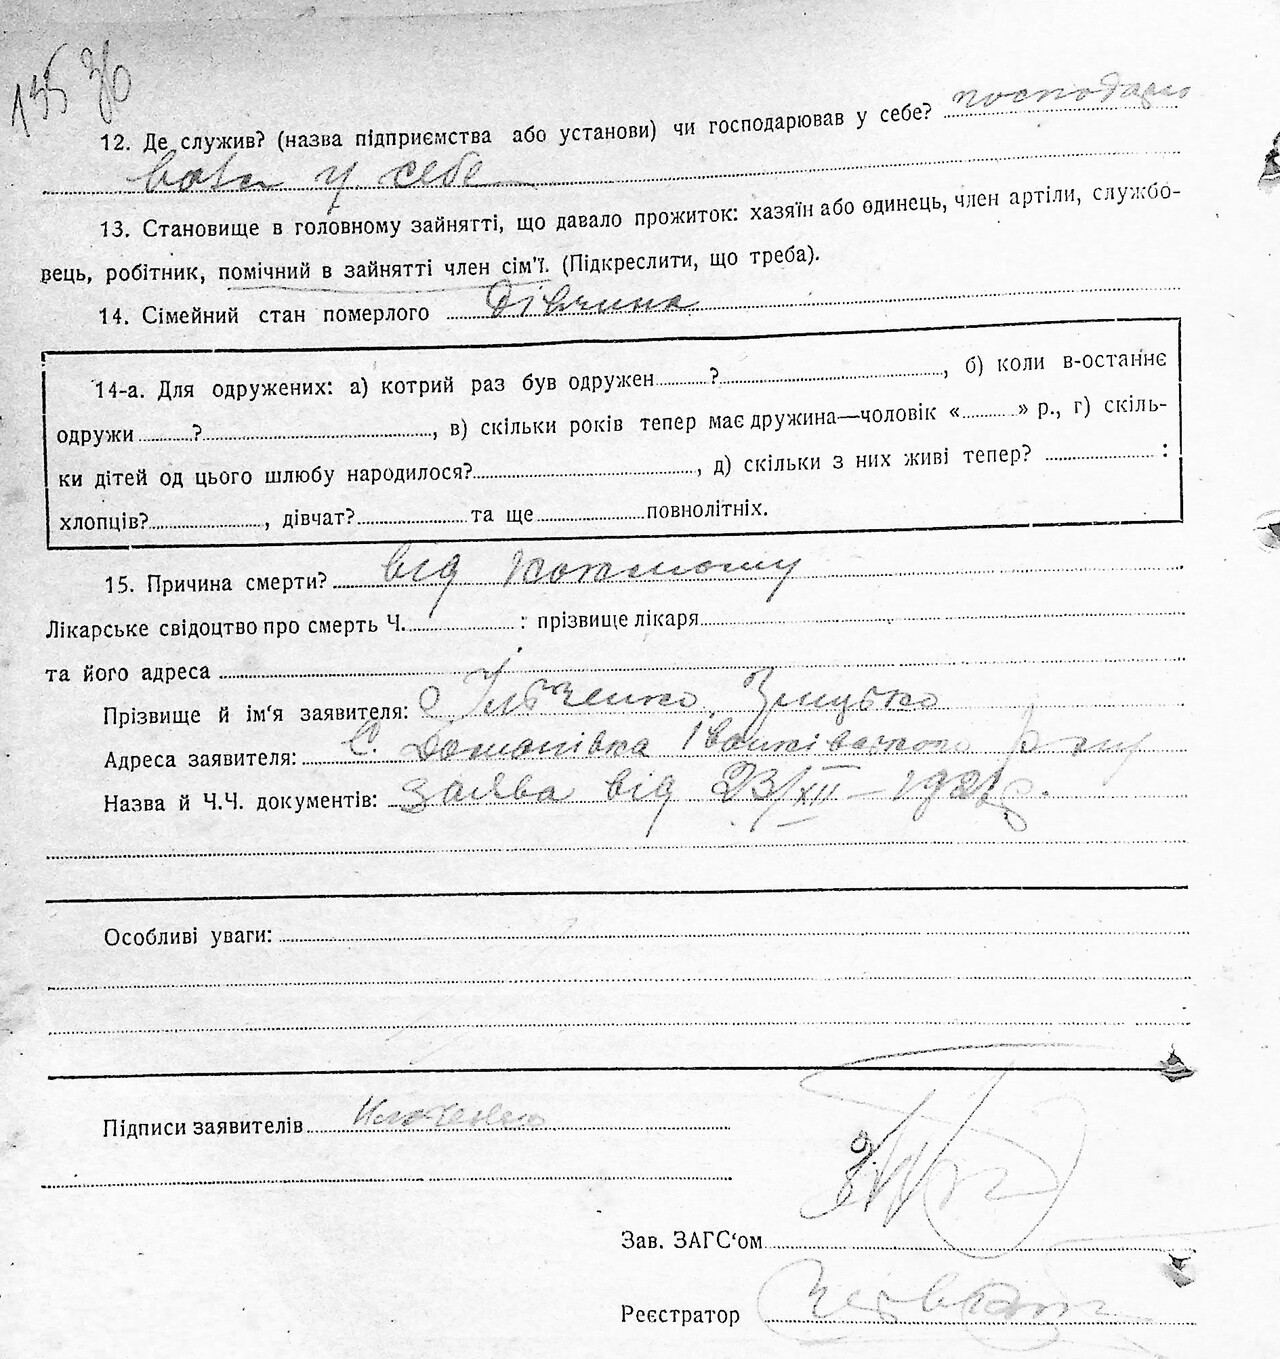 135 36
12. Де служив? (назва підприємства або установи) чи господарював у себе? господарю
вала у себе
13. Становище в головному зайнятті, що давало прожиток: хазяїн або одинець, член артіли, службо-
вець, робітник, помічний в зайнятті член сім'ї. (Підкреслити, що треба).
14. Сімейний стан померлого Дівчина
14-а. Для одружених: а) котрий раз був одружен ?, б) коли в-останнє
одружи ?, в) скільки років тепер має дружина—чоловік « » р., г) скіль-
ки дітей од цього шлюбу народилося?, д) скільки з них живі тепер? :
хлопців?, дівчат? та ще повнолітніх.
15. Причина смерти? від
Лікарське свідоцтво про смерть Ч. : прізвище лікаря
та його адреса
Прізвище й ім'я заявителя: Ільченко Грицько
Адреса заявителя: С. Домонівка
Назва й Ч.Ч. документів: заява від 23/XII – 192
Особливі уваги:
Підписи заявителів Ильченко
Зав. ЗАГС'ом
Реєстратор